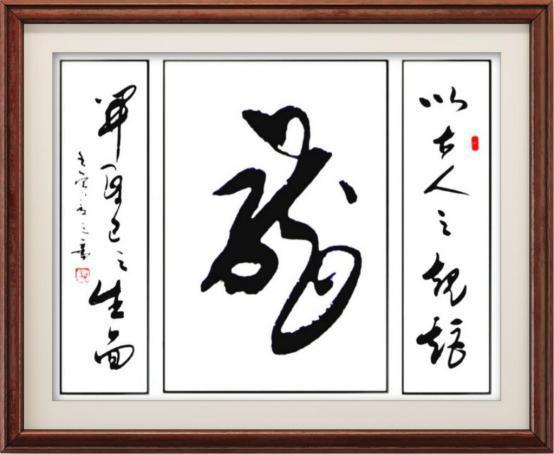 以古人之規矩
龍
開自己之生面
壬寅